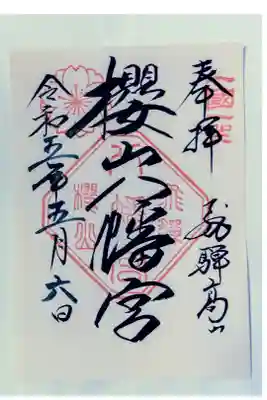 奉拝
飛騨高山
櫻山八幡宮
令和五年五月六日